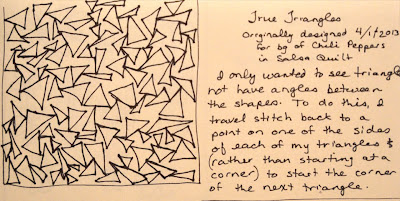 True Triangles
Originally designed 4/17/2013
for bg of Chili Peppers
in Salsa Quilt
I only wanted to see triangle
not have angles between
the shapes. To do this, I
travel stitch back to a
point on one of the sides
of each of my triangles &
(rather than starting at a
corner) to start the corner
of the next triangle.